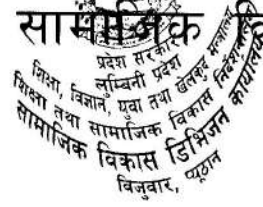 सामाजिक
प्रदेश सरकार
लुम्बिनी प्रदेश
शिक्षा, विज्ञान, युवा तथा खेलकुद मन्त्रालय
शिक्षा तथा सामाजिक विकास निर्देशनालय
सामाजिक विकास डिभिजन कार्यालय
विजुवार, प्यूठान